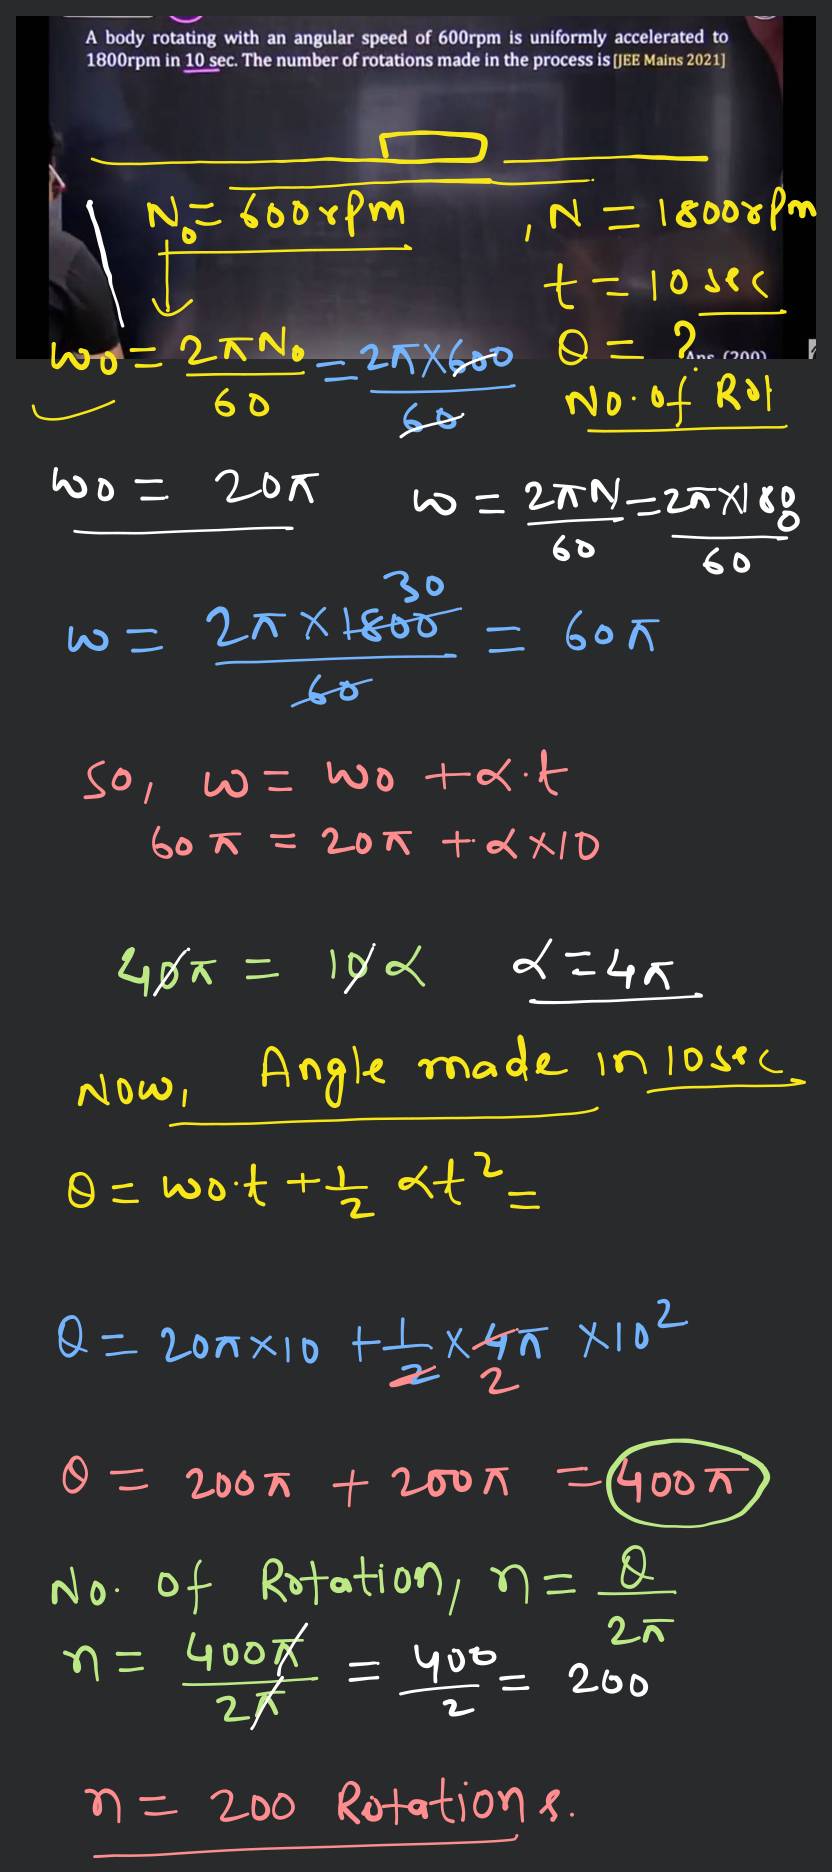 A body rotating with an angular speed of 600rpm is uniformly accelerated to
1800rpm in 10 sec. The number of rotations made in the process is [JEE Mains 2021]
N₀ = 600 rpm , N = 1800 rpm
t = 10 sec
θ = ?
Ans (200)
ω₀ = 2πN₀/60 = 2π×600/60
No. of Rot
ω₀ = 20π
ω = 2πN/60 = 2π×1800/60
ω = 2π × 1800/60 = 60π
30
So, ω = ω₀ + α.t
60π = 20π + α×10
40π = 10α α = 4π
Now, Angle made in 10 sec
θ = ω₀.t + 1/2 αt² =
θ = 20π×10 + 1/2 × 4π × 10²
2
θ = 200π + 200π = 400π
No. of Rotation, n = θ/2π
n = 400π/2π = 400/2 = 200
n = 200 Rotations.